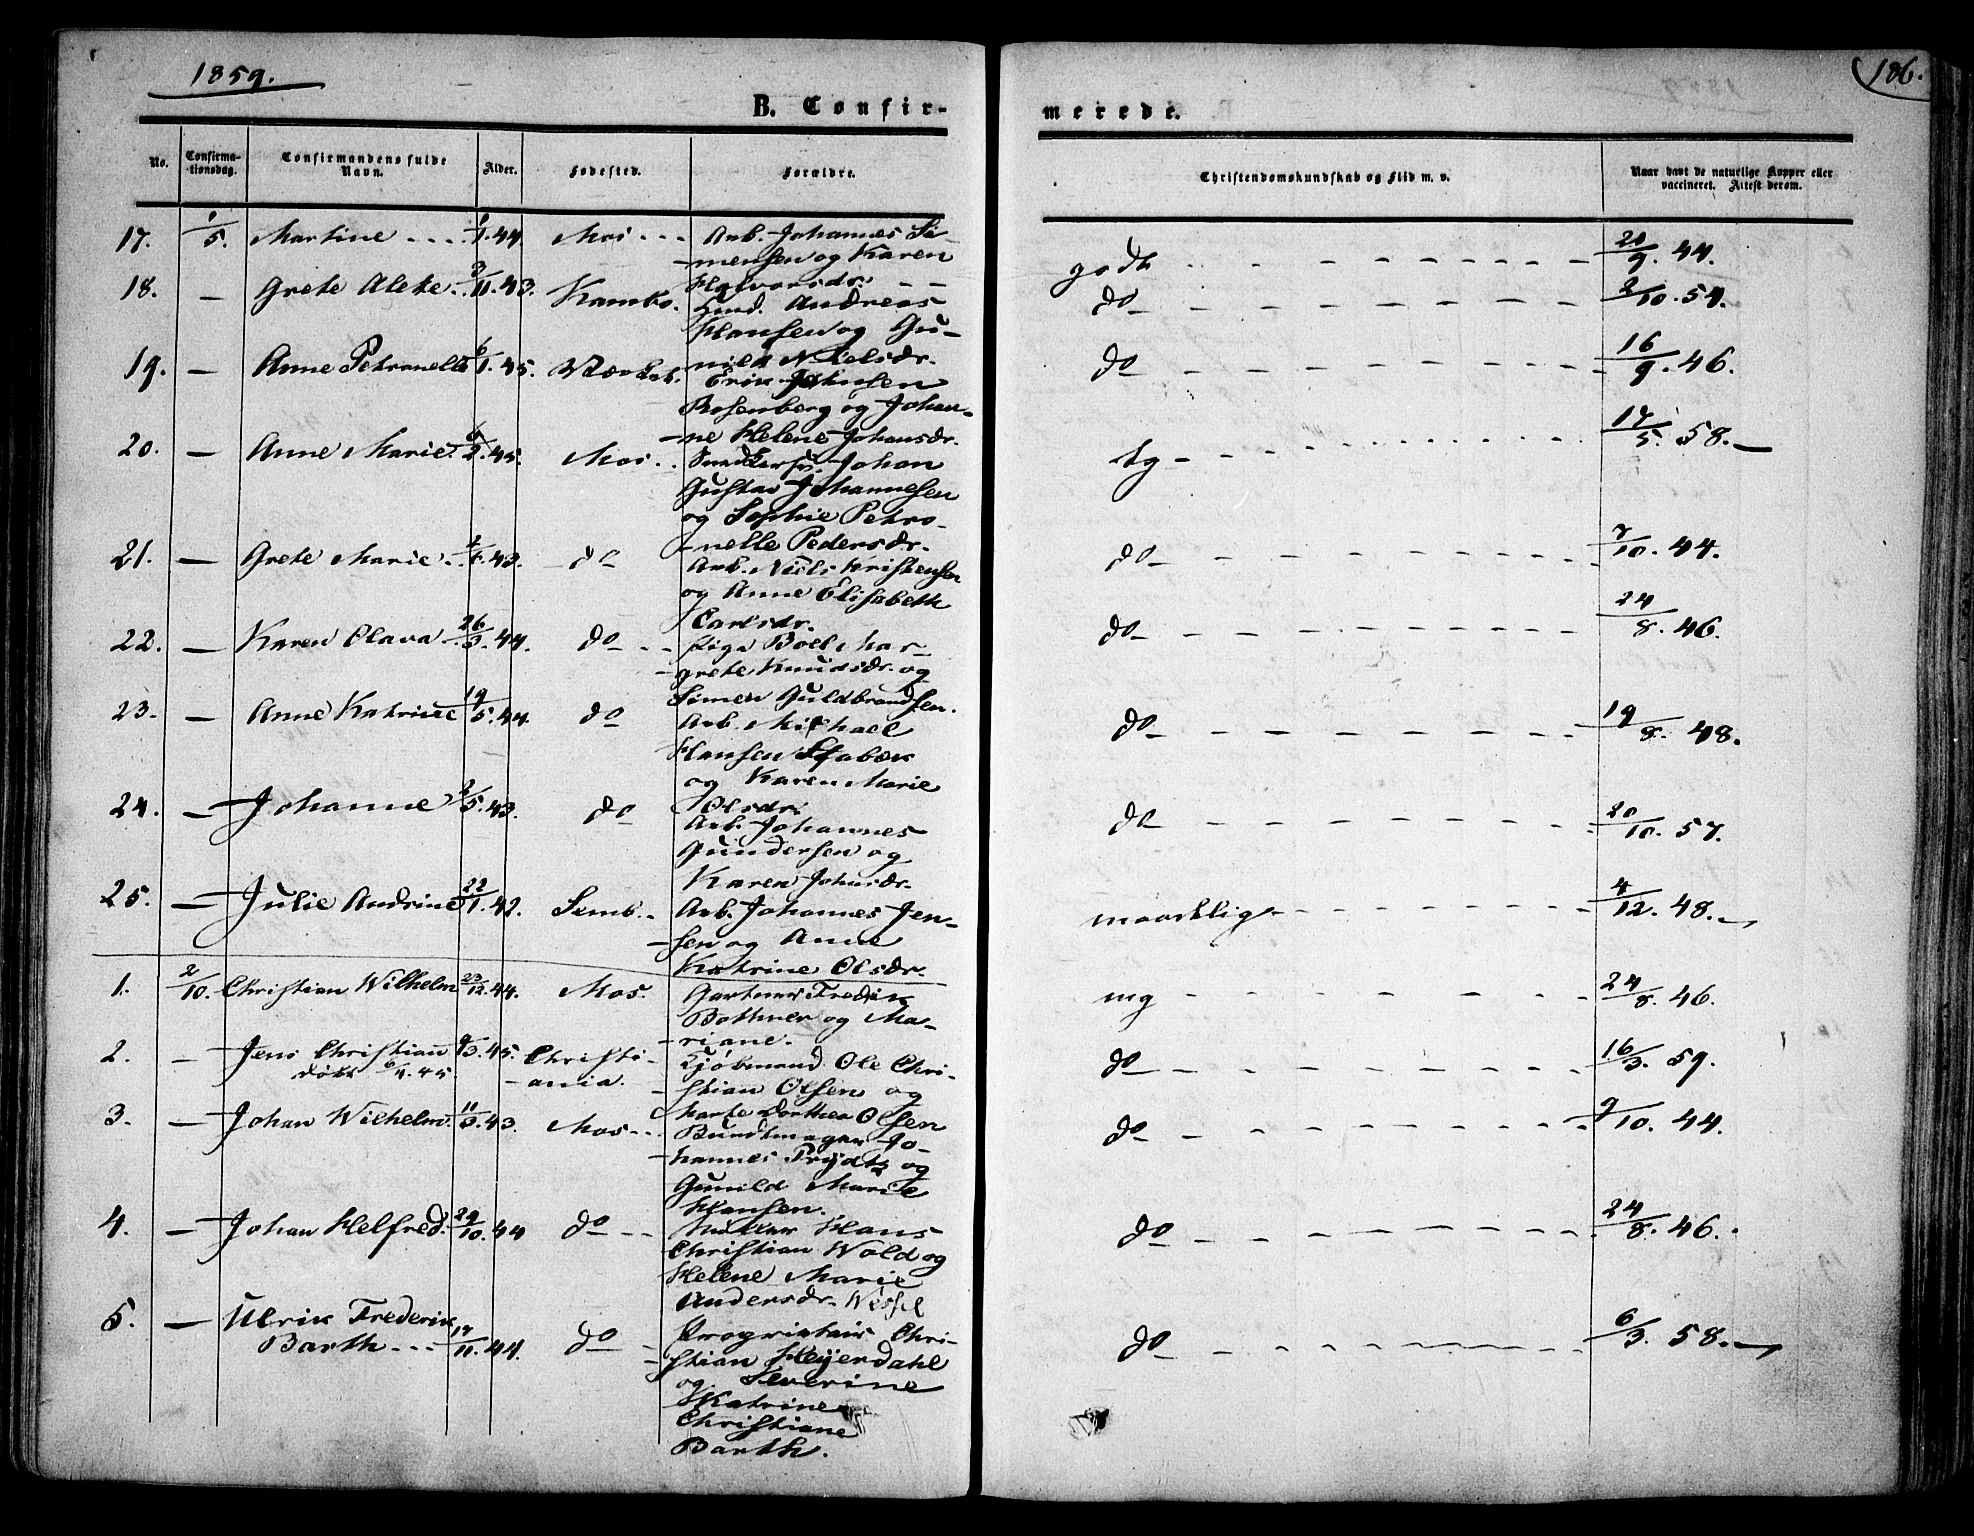 1859.
186.
B. Confir-
merede.
No.
Confirma-
tionsdag.
Confirmandens fulde
Navn.
Alder.
Fødested.
Forældre.
Christendomskundskab og Flid m. v.
Naar havt de naturlige Kopper eller
vaccineret. Attest derom.
17. 1/5. Martine 44 Arb. Johannes Si-
mensen og Karen
Halvorsdr.
godt 20/9. 44.
18. — Grete Aleke 3/11. 43. Kambo. Andreas
Hansen og Gu-
nild Nielsdr.
do 2/10. 54.
19. — Anne Petronelle 6/1. 45. Erik Johnsen
Rosenberg og Johan-
ne Helene Johansdr.
do 16/9. 46.
20. — Anne Marie 45. Mos. Johan
Gustav Johannesen
og Sophie Petro-
nelle Pedersdr.
tg 17/5. 58.
21. — Grete Marie 43. do Arb. Niels Kristensen
og Anne Elisabeth
Carlsdr.
do 7/10. 44.
22. — Karen Olava 26/3. 44. do Pige Boel Mar-
grete Knudsdr. og
Simen Guldbrandsen.
do 24/8. 46.
23. — Anne Katrine 19/5. 44. do Arb. Michael
Hansen Stabæk
og Karen Marie
Olsdr.
do 19/8. 48.
24. — Johanne 2/5. 43. do Arb. Johannes
Gundersen og
Karen Johnsdr.
do 20/10. 57.
25. — Julie Andrine 22/1. 42. Semb. Arb. Johannes Jen-
sen og Anne
Katrine Olsdr.
maadelig 4/12. 48.
1. 2/10. Christian Wilhelm 23/12. 44. Mos. Gartner Fredrik
Bothner og Ma-
riane.
mg 24/8. 46.
2. — Jens Christian 9/3. 45. Christi-
ania. Kjøbmand Ole Chri-
døbt 6/4. 45. stian Olsen og
Marte Dorthea Olsen
do 16/3. 59.
3. — Johan Wilhelm. 11/3. 43. Mos Bundtmager Jo-
hannes Prydtz og
Gunild Marie
Hansen.
do 9/10. 44.
4. — Johan Helfred. 29/10. 44 do Hans
Christian Wold og
Helene Marie
Andersdr. Wessel
do 24/8. 46.
5. — Ulrik Frederik
Barth 17/11. 44. do Proprietair Chri-
stian Heyerdahl
og Severine
Katrine
Christiane
Barth.
do 6/3. 58.